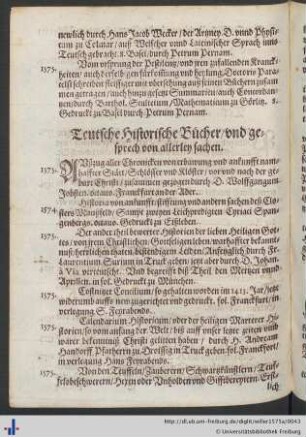 newlich durch Hans Jacob Wecker / der Artzney D. vnnd Physi-
cum zu Colmar / auß Welscher vnnd Lateinischer Sprach inns
Teutsch gebracht. 8. Basel. durch Petrum Pernam.
Vom vrsprung der Pestilentz / vnd jren zufallenden Kranck-
1575. heiten / auch derselbigen fürkom̃ung vnd heylung. Doctoris Para-
celsi schreiben fleissiger auß vbersehung auß seinen Büchern zusam̃
men getragen / auch hinzu gesetzt Summarien / auch Conconrdan-
tzen / durch Barthol. Scultetum / Mathematicum zu Görlitz. 8.
Gedruckt zu Basel durch Petrum Pernam.
Teutsche Historische Bücher / vnd ge-
sprech von allerley sachen.
Außzug alter Chronicken von erbawung vnd ankunfft nam-
haffter Stätt / Schlösser vnd Klöster / vor vnd nach der ge-
1573. burt Christi / zusammen gezogen durch D. Wolffgangum
Jobsten. octauo. Franckfurt an der Ader.
Historia von ankunfft / stifftung vnd andern sachen deß Clo-
1574. sters Manßfeld / Sampt zweyen Leichpredigten Cyriaci Span-
genbergs. octauo. Gedruckt zu Eißleben.
Der ander theil bewerter Historien der lieben Heiligen Got-
tes / von jrem Christlichen / Gottseligen leben / warhaffter bekantt-
1574. nuß / herrlichen thaten / bestendigem Leiden / Anfenglich durch Fr.
Laurentium Surium in Truck geben / jetzt aber durch D. Johan.
à Via verteutscht. Vnd begreifft diß Theil den Mertzen vnnd
Aprillen. in fol. Gedruckt zu München.
Costnitzer Concilium / so gehalten worden im 1413. Jar / jetzt
1575. widerumb auffs new zugerichtet vnd gedruckt. fol. Franckfurt / in
verlegung S. Feyrabends.
Calendarium Historicum / oder der heiligen Marterer Hi-
storien / so vom anfang der Welt / biß auff vnser letzte zeiten vmb
1575. warer bekentnuß Christi gelitten haben / durch H. Andream
Hondorff Pfarherrn zu Droissig in Truck geben. fol. Franckfurt /
in verlegung Hans Feyrabends.
1575. Von den Teuffeln / Zauberern / Schwartzkünstlern / Teuf-
felsbeschwerern / Hexen oder Vnholden vnd Gifftbereytern. Erst-
lich
http://dl.ub.uni-freiburg.de/diglit/willer1575a/0043
Universitätsbibliothek Freiburg